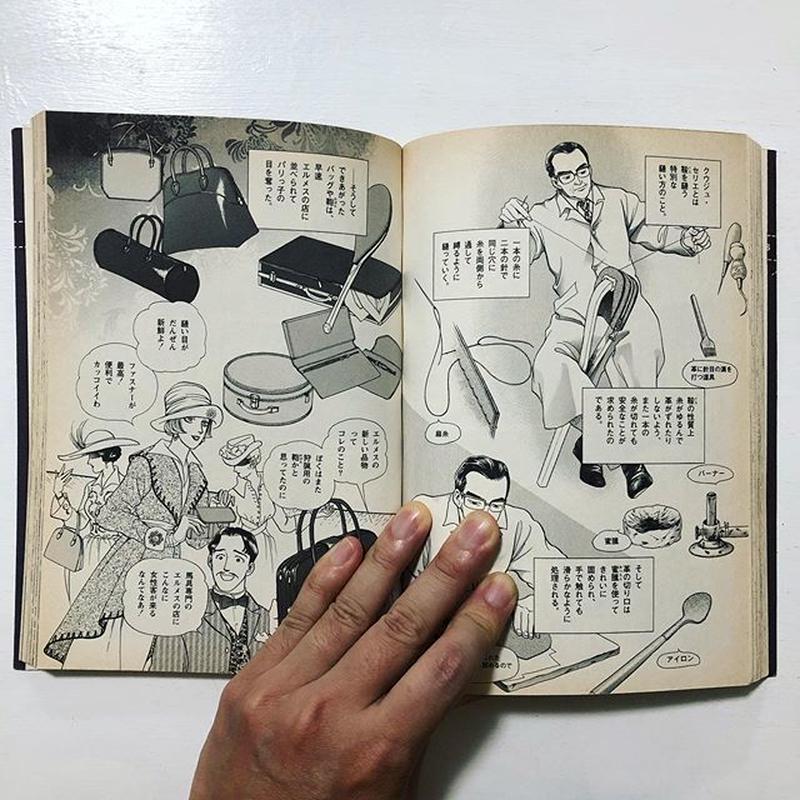 クウジュ・
セリエとは
鞍を縫う
特別な
縫い方のこと。
一本の糸に
二本の針で
同じ穴に
糸を両側から
通して
縛るように
縫っていく。
革に針目の溝を
打つ道具
鞍の性質上
糸がゆるんで
革がずれたり
しないよう、
また一本の
糸が切れても
安全なことが
求められたの
である。
麻糸
バーナー
蜜蝋
そして
革の切り口は
蜜蝋を使って
きれいに
固められ、
手で触れても
滑らかなように
処理される。
アイロン
──そうして
できあがった
バッグや鞄は、
早速
エルメスの店に
並べられて
パリっ子の
目を奪った。
縫い目が
だんぜん
新鮮よ!
ファスナーが
最高!
便利で
カッコイイわ
エルメスの
新しい品物
って
コレのこと?
ぼくはまた
狩猟用の
鞄かと
思ってたのに
馬具専門の
エルメスの店に
こんなに
女性客が来る
なんてなあ!